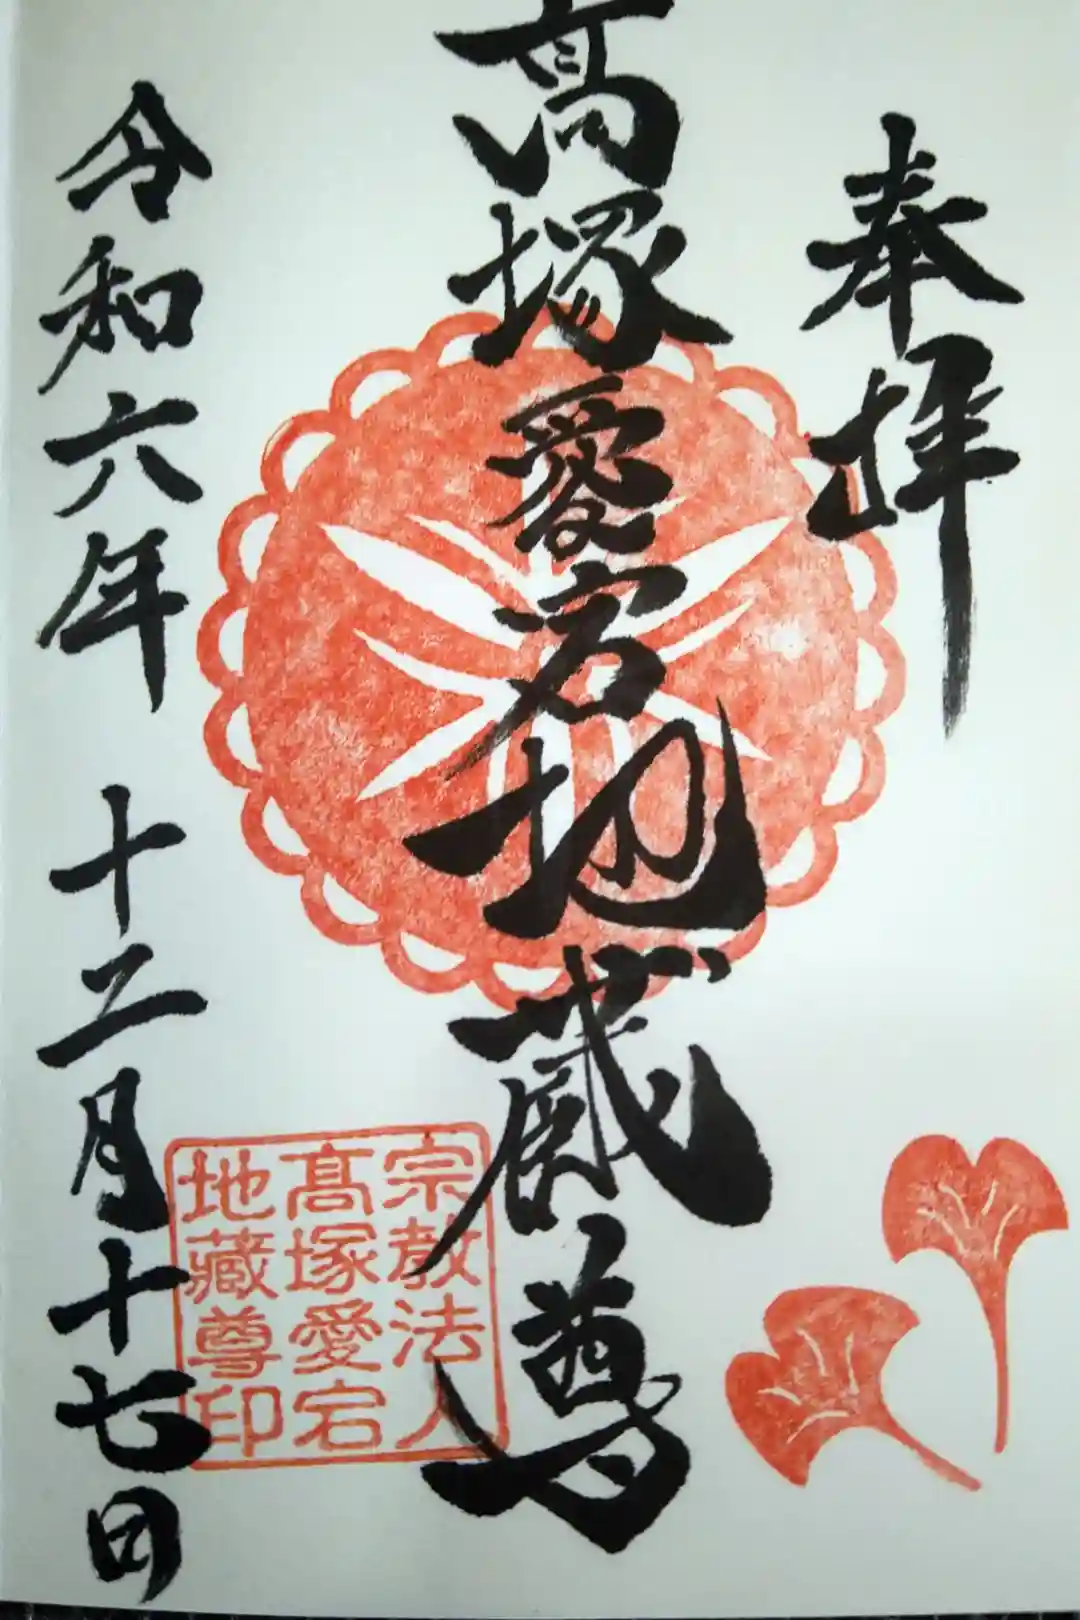 奉拝
髙塚愛宕地蔵尊
令和六年 十二月十七日
宗教法人
髙塚愛宕
地蔵尊印